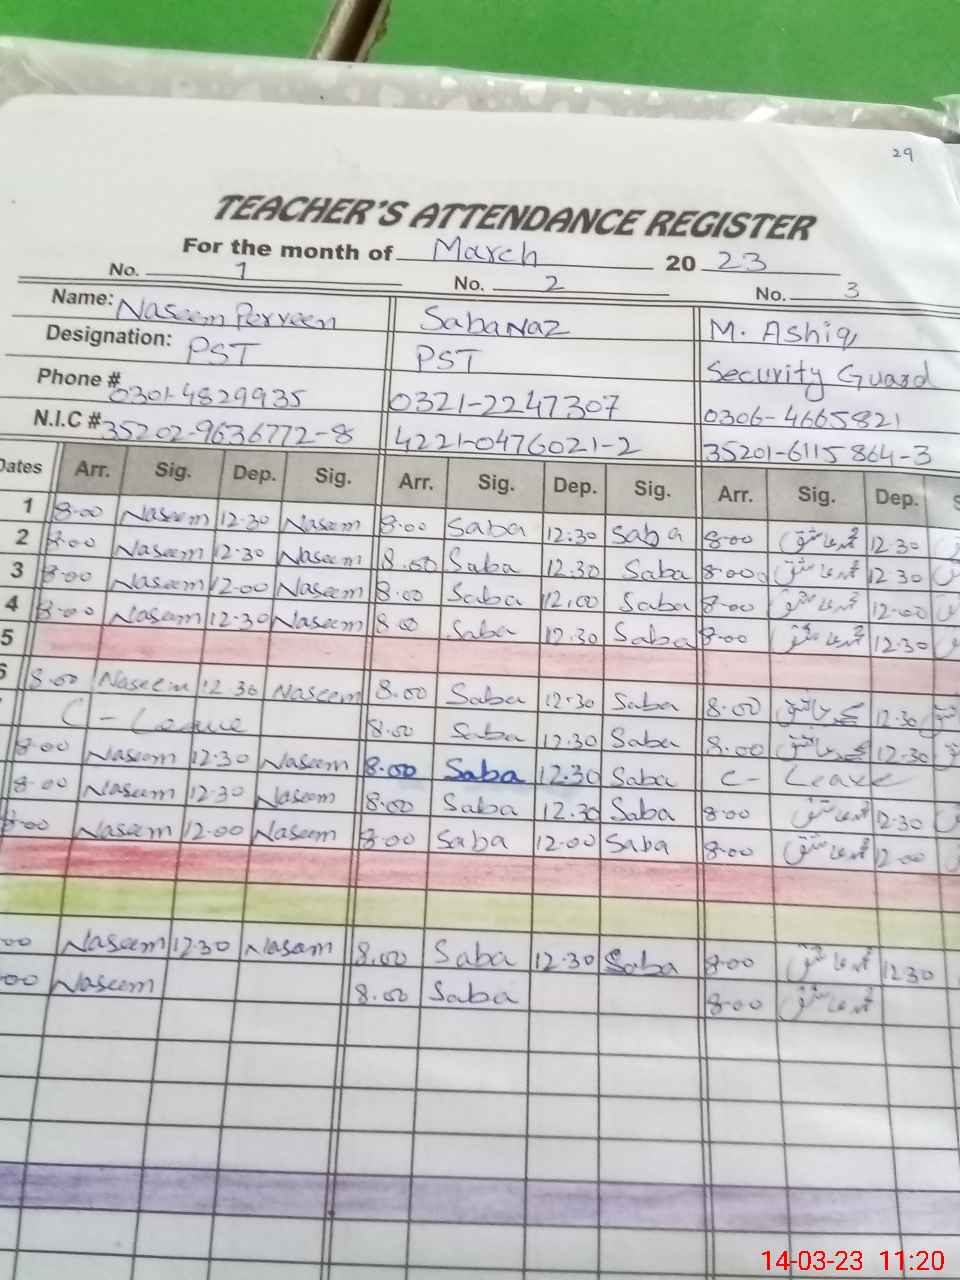 29
TEACHER'S ATTENDANCE REGISTER
For the month of March 20 23
No. 1 No. 2 No. 3
Name: Naseem Perveen Saba Naz M. Ashiq
Designation: PST PST Security Guard
Phone # 0301-4829935 0321-2247307 0306-4665821
N.I.C # 35202-9636772-8 4221-0476021-2 35201-6115864-3
Dates Arr. Sig. Dep. Sig. Arr. Sig. Dep. Sig. Arr. Sig. Dep. S
1 8.00 Naseem 12.30 Naseem 8.00 Saba 12.30 Saba 8.00 12.30
2 8.00 Naseem 12.30 Naseem 8.00 Saba 12.30 Saba 8.00 12.30
3 8.00 Naseem 12.00 Naseem 8.00 Saba 12.00 Saba 8.00 12.00
4 8.00 Naseem 12.30 Naseem 8.00 Saba 12.30 Saba 8.00 12.30
5
8.00 Naseem 12.30 Naseem 8.00 Saba 12.30 Saba 8.00 12.30
C - Leave 8.00 Saba 12.30 Saba 8.00 12.30
8.00 Naseem 12.30 Naseem 8.00 Saba 12.30 Saba C - Leave
8.00 Naseem 12.30 Naseem 8.00 Saba 12.30 Saba 8.00 12.30
8.00 Naseem 12.00 Naseem 8.00 Saba 12.00 Saba 8.00 12.00
00 Naseem 12.30 Naseem 8.00 Saba 12.30 Saba 8.00 12.30
00 Naseem 8.00 Saba 8.00
14-03-23 11:20